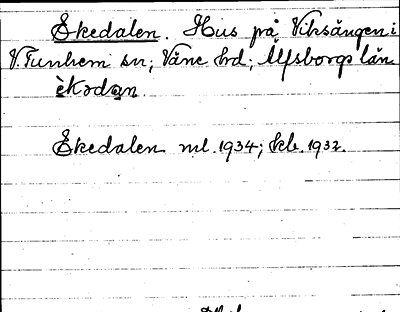 Ekedalen. Hus på Viksängen i
V. Tunhem sn; Väne hd; Älfsborgs län
èkədạn.
Ekedalen ml. 1934; kb. 1932.